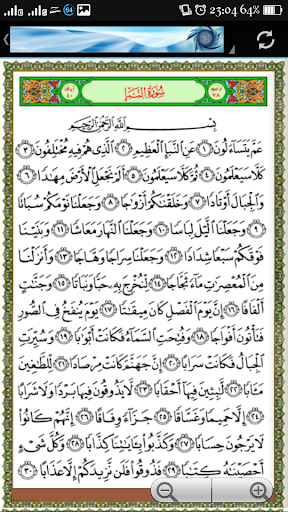 84 23:04 64%
سُورَةُ النَّبَإِ
بِسْمِ ٱللَّهِ ٱلرَّحْمَٰنِ ٱلرَّحِيمِ
عَمَّ يَتَسَآءَلُونَ ١ عَنِ ٱلنَّبَإِ ٱلْعَظِيمِ ٢ ٱلَّذِى هُمْ فِيهِ مُخْتَلِفُونَ ٣
كَلَّا سَيَعْلَمُونَ ٤ ثُمَّ كَلَّا سَيَعْلَمُونَ ٥ أَلَمْ نَجْعَلِ ٱلْأَرْضَ مِهَٰدًا ٦
وَٱلْجِبَالَ أَوْتَادًا ٧ وَخَلَقْنَٰكُمْ أَزْوَٰجًا ٨ وَجَعَلْنَا نَوْمَكُمْ سُبَاتًا
٩ وَجَعَلْنَا ٱلَّيْلَ لِبَاسًا ١٠ وَجَعَلْنَا ٱلنَّهَارَ مَعَاشًا ١١ وَبَنَيْنَا
فَوْقَكُمْ سَبْعًا شِدَادًا ١٢ وَجَعَلْنَا سِرَاجًا وَهَّاجًا ١٣ وَأَنزَلْنَا
مِنَ ٱلْمُعْصِرَٰتِ مَآءً ثَجَّاجًا ١٤ لِّنُخْرِجَ بِهِۦ حَبًّا وَنَبَاتًا ١٥ وَجَنَّٰتٍ
أَلْفَافًا ١٦ إِنَّ يَوْمَ ٱلْفَصْلِ كَانَ مِيقَٰتًا ١٧ يَوْمَ يُنفَخُ فِى ٱلصُّورِ
فَتَأْتُونَ أَفْوَاجًا ١٨ وَفُتِحَتِ ٱلسَّمَآءُ فَكَانَتْ أَبْوَٰبًا ١٩ وَسُيِّرَتِ
ٱلْجِبَالُ فَكَانَتْ سَرَابًا ٢٠ إِنَّ جَهَنَّمَ كَانَتْ مِرْصَادًا ٢١ لِّلطَّٰغِينَ
مَـَٔابًا ٢٢ لَّٰبِثِينَ فِيهَآ أَحْقَابًا ٢٣ لَّا يَذُوقُونَ فِيهَا بَرْدًا وَلَا شَرَابًا
٢٤ إِلَّا حَمِيمًا وَغَسَّاقًا ٢٥ جَزَآءً وِفَاقًا ٢٦ إِنَّهُمْ كَانُوا۟
لَا يَرْجُونَ حِسَابًا ٢٧ وَكَذَّبُوا۟ بِـَٔايَٰتِنَا كِذَّابًا ٢٨ وَكُلَّ شَىْءٍ
أَحْصَيْنَٰهُ كِتَٰبًا ٢٩ فَذُوقُوا۟ فَلَن نَّزِيدَكُمْ إِلَّا عَذَابًا ٣٠